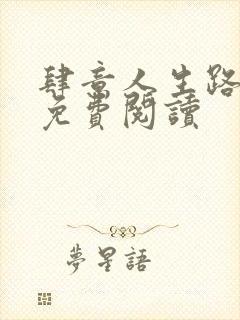 肆意人生路
免費閱讀
夢星語